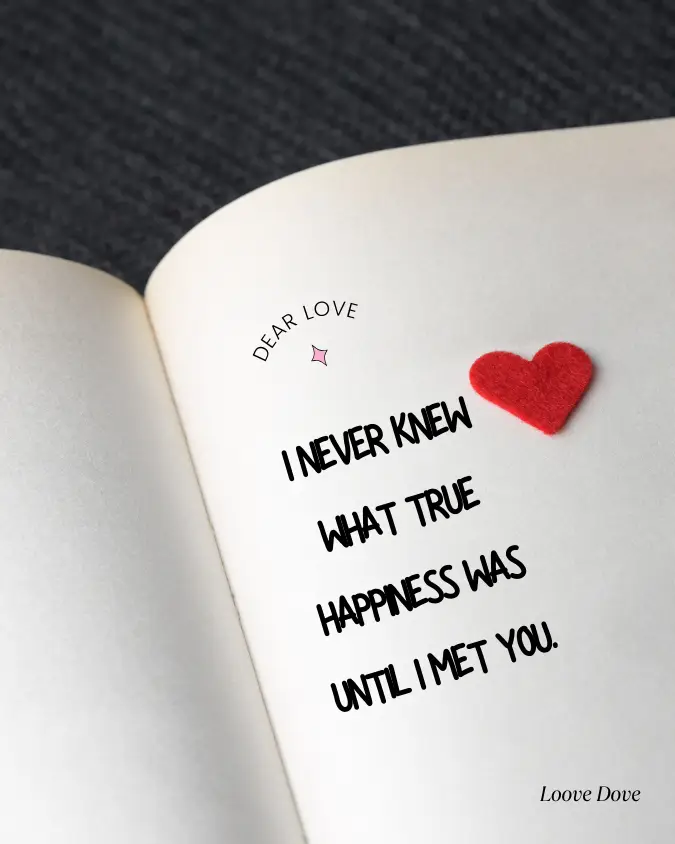 DEAR LOVE
I NEVER KNEW
WHAT TRUE
HAPPINESS WAS
UNTIL I MET YOU.
Loove Dove